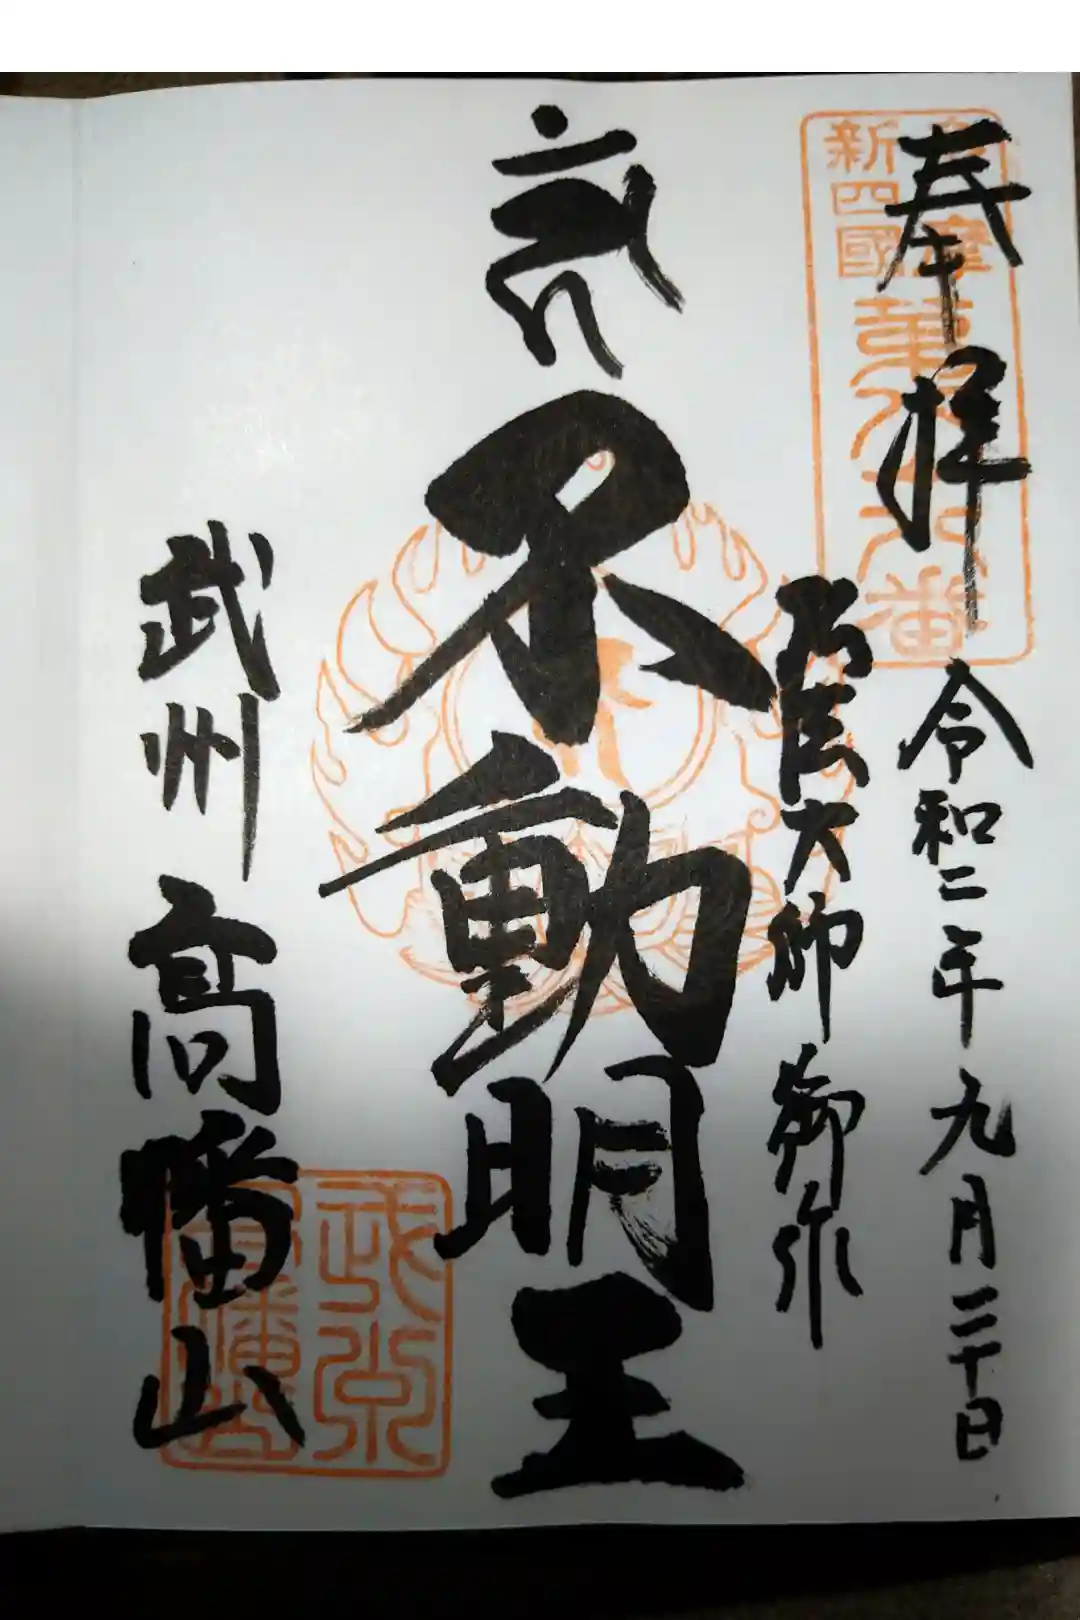 奉拝
令和二年九月二十日
弘法大師御作
不動明王
武州
高幡山
新四國